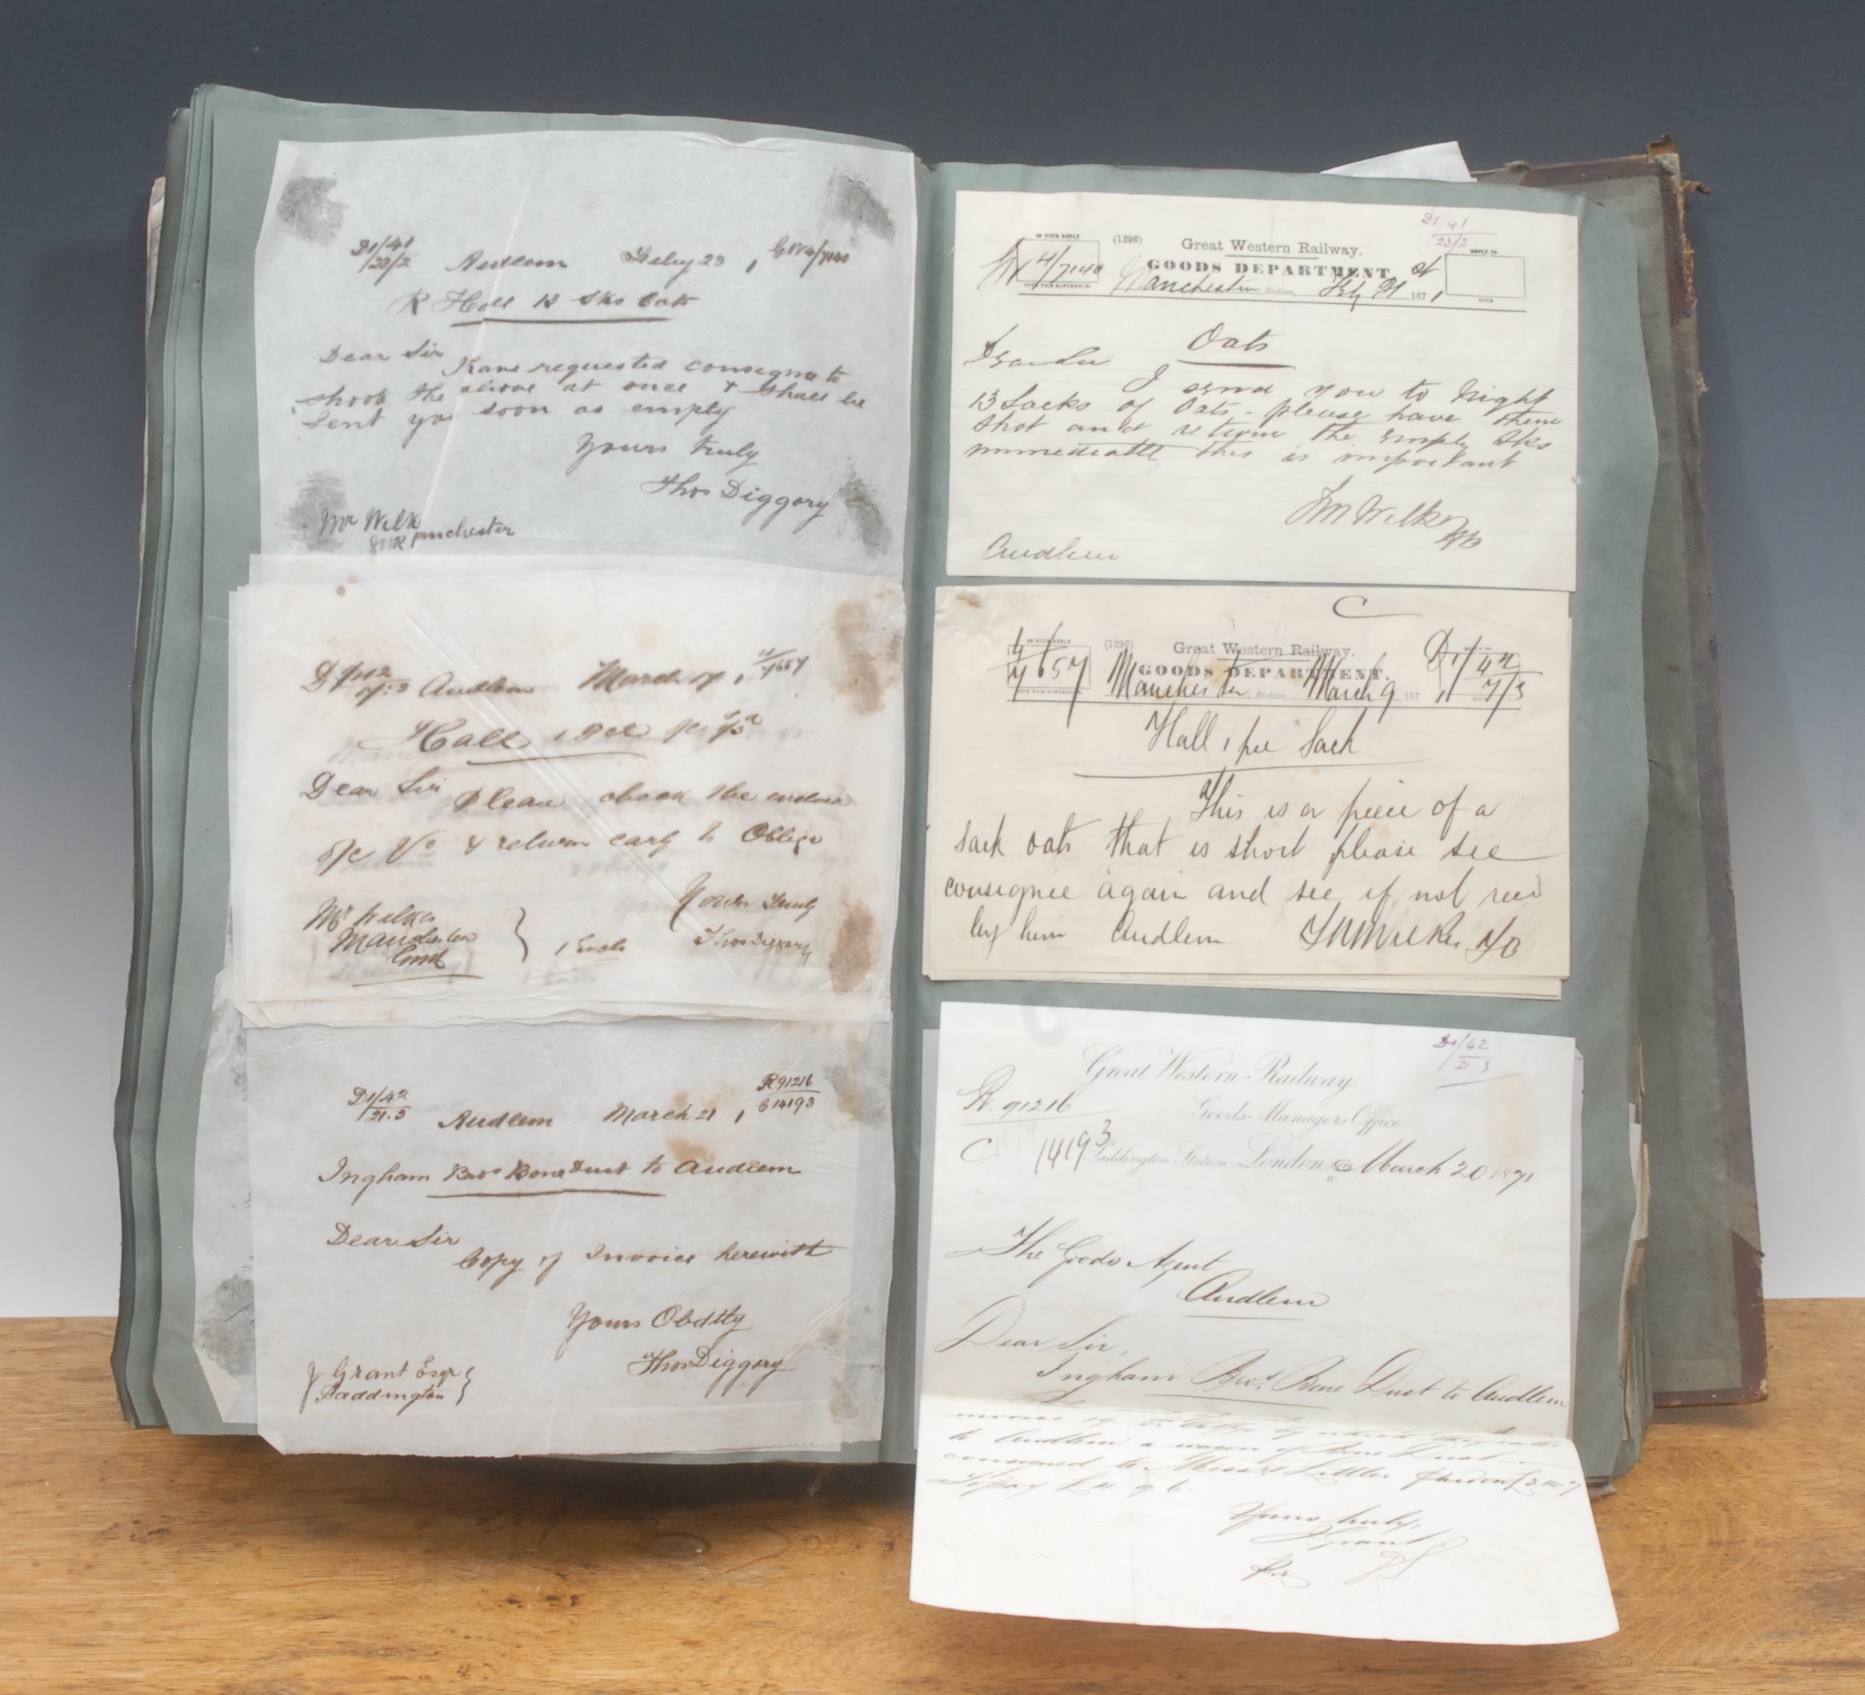 D1/41
23/2
Audlem Feby 23, 1
GW 4/7140
R Hall 13 Sks Oats
Dear Sir
Have requested consignee to
shoot the above at once & shall be
sent you soon as empty
Yours truly
Thos Diggory
Mr Wilk
GWR Manchester
Audlem March 17, 1
4/7657
Hall 1 pce
Dear Sir
Please check the enclosed
& return early to Oblige
Yours truly
Thos Diggory
Mr Wilkes
Manchester
Goods
1 Enclo
D1/42
21.3
Audlem March 21, 1
R91216
C14193
Ingham Bros Bone Dust to Audlem
Dear Sir
Copy of Invoice herewith
Yours Obdtly
Thos Diggory
J Grant Esqr
Paddington
D1/41
23/2
IN YOUR REPLY
4/7140
(1296)
Great Western Railway.
REPLY TO
GOODS DEPARTMENT,
Manchester Station, Feby 21st 1871
Oats
Dear Sir
I send you to Night
13 Sacks of Oats - please have them
shot and return the empty Sks
immediately this is important
Wilkes
Audlem
C
IN YOUR REPLY
4/7657
(1296)
Great Western Railway.
GOODS DEPARTMENT.
Manchester Station, March 9 1871
D1/42
7/3
Hall 1 pce Sack
This is a piece of a
sack oats that is short please see
consignee again and see if not recd
by him Audlem
D1/42
21.3
Great Western Railway
R. 91216
Goods Managers Office
C 14193
Paddington Station London March 20 1871
The Goods Agent
Audlem
Dear Sir,
Ingham Bros. Bone Dust to Audlem
to Audlem a wagon of Bone Dust
consigned to Messrs
To pay
Yours truly,
J Grant